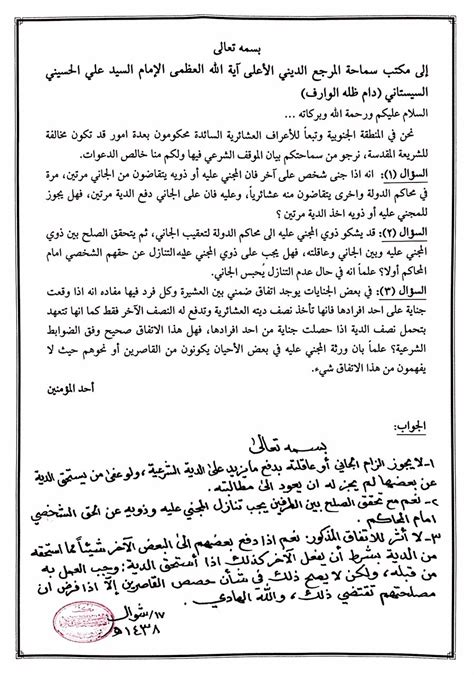 بسمه تعالى
إلى مكتب سماحة المرجع الديني الأعلى آية الله العظمى الإمام السيد علي الحسيني
السيستاني (دام ظله الوارف)
السلام عليكم ورحمة الله وبركاته ...
نحن في المنطقة الجنوبية وتبعاً للأعراف العشائرية السائدة محكومون بعدة امور قد تكون مخالفة
للشريعة المقدسة، نرجو من سماحتكم بيان الموقف الشرعي فيها ولكم منا خالص الدعوات.
السؤال (١): انه اذا جنى شخص على آخر فان المجني عليه أو ذويه يتقاضون من الجاني مرتين، مرة
في محاكم الدولة واخرى يتقاضون منه عشائرياً، وعليه فان على الجاني دفع الدية مرتين، فهل يجوز
للمجني عليه أو ذويه اخذ الدية مرتين؟
السؤال (٢): قد يشكو ذوي المجني عليه الى محاكم الدولة لتعقيب الجاني، ثم يتحقق الصلح بين ذوي
المجني عليه وبين الجاني وعاقلته، فهل يجب على ذوي المجني عليه التنازل عن حقهم الشخصي امام
المحاكم أولا؟ علماً انه في حال عدم التنازل يُحبس الجاني.
السؤال (٣): في بعض الجنايات يوجد اتفاق ضمني بين العشيرة وكل فرد فيها مفاده انه اذا وقعت
جناية على احد افرادها فانها تأخذ نصف ديته العشائرية وتدفع له النصف الآخر فقط كما انها تتعهد
بتحمل نصف الدية اذا حصلت جناية من احد افرادها، فهل هذا الاتفاق صحيح وفق الضوابط
الشرعية؟ علماً بان ورثة المجني عليه في بعض الأحيان يكونون من القاصرين أو نحوهم حيث لا
يفهمون من هذا الاتفاق شيء.
أحد المؤمنين
الجواب:
بسمه تعالى
١- لا يجوز الزام الجاني أو عاقلته بدفع ما يزيد على الدية الشرعية، ولو عفى من يستحق الدية
عن بعضها لم يجز له ان يعود الى مطالبته.
٢- نعم مع تحقق الصلح بين الطرفين يجب تنازل المجني عليه وذويه عن الحق الشخصي
امام المحاكم.
٣- لا أثر للاتفاق المذكور، نعم اذا دفع بعضهم الى البعض الآخر شيئاً مما استحقه
من الدية بشرط أن يفعل الآخر كذلك اذا أستحق الدية: وجب العمل به
من قبله، ولكن لا يصح ذلك في شأن حصص القاصرين إلّا اذا فرض ان
مصلحتهم تقتضي ذلك، والله الهادي.
١٧/شوال/
١٤٣٨هـ